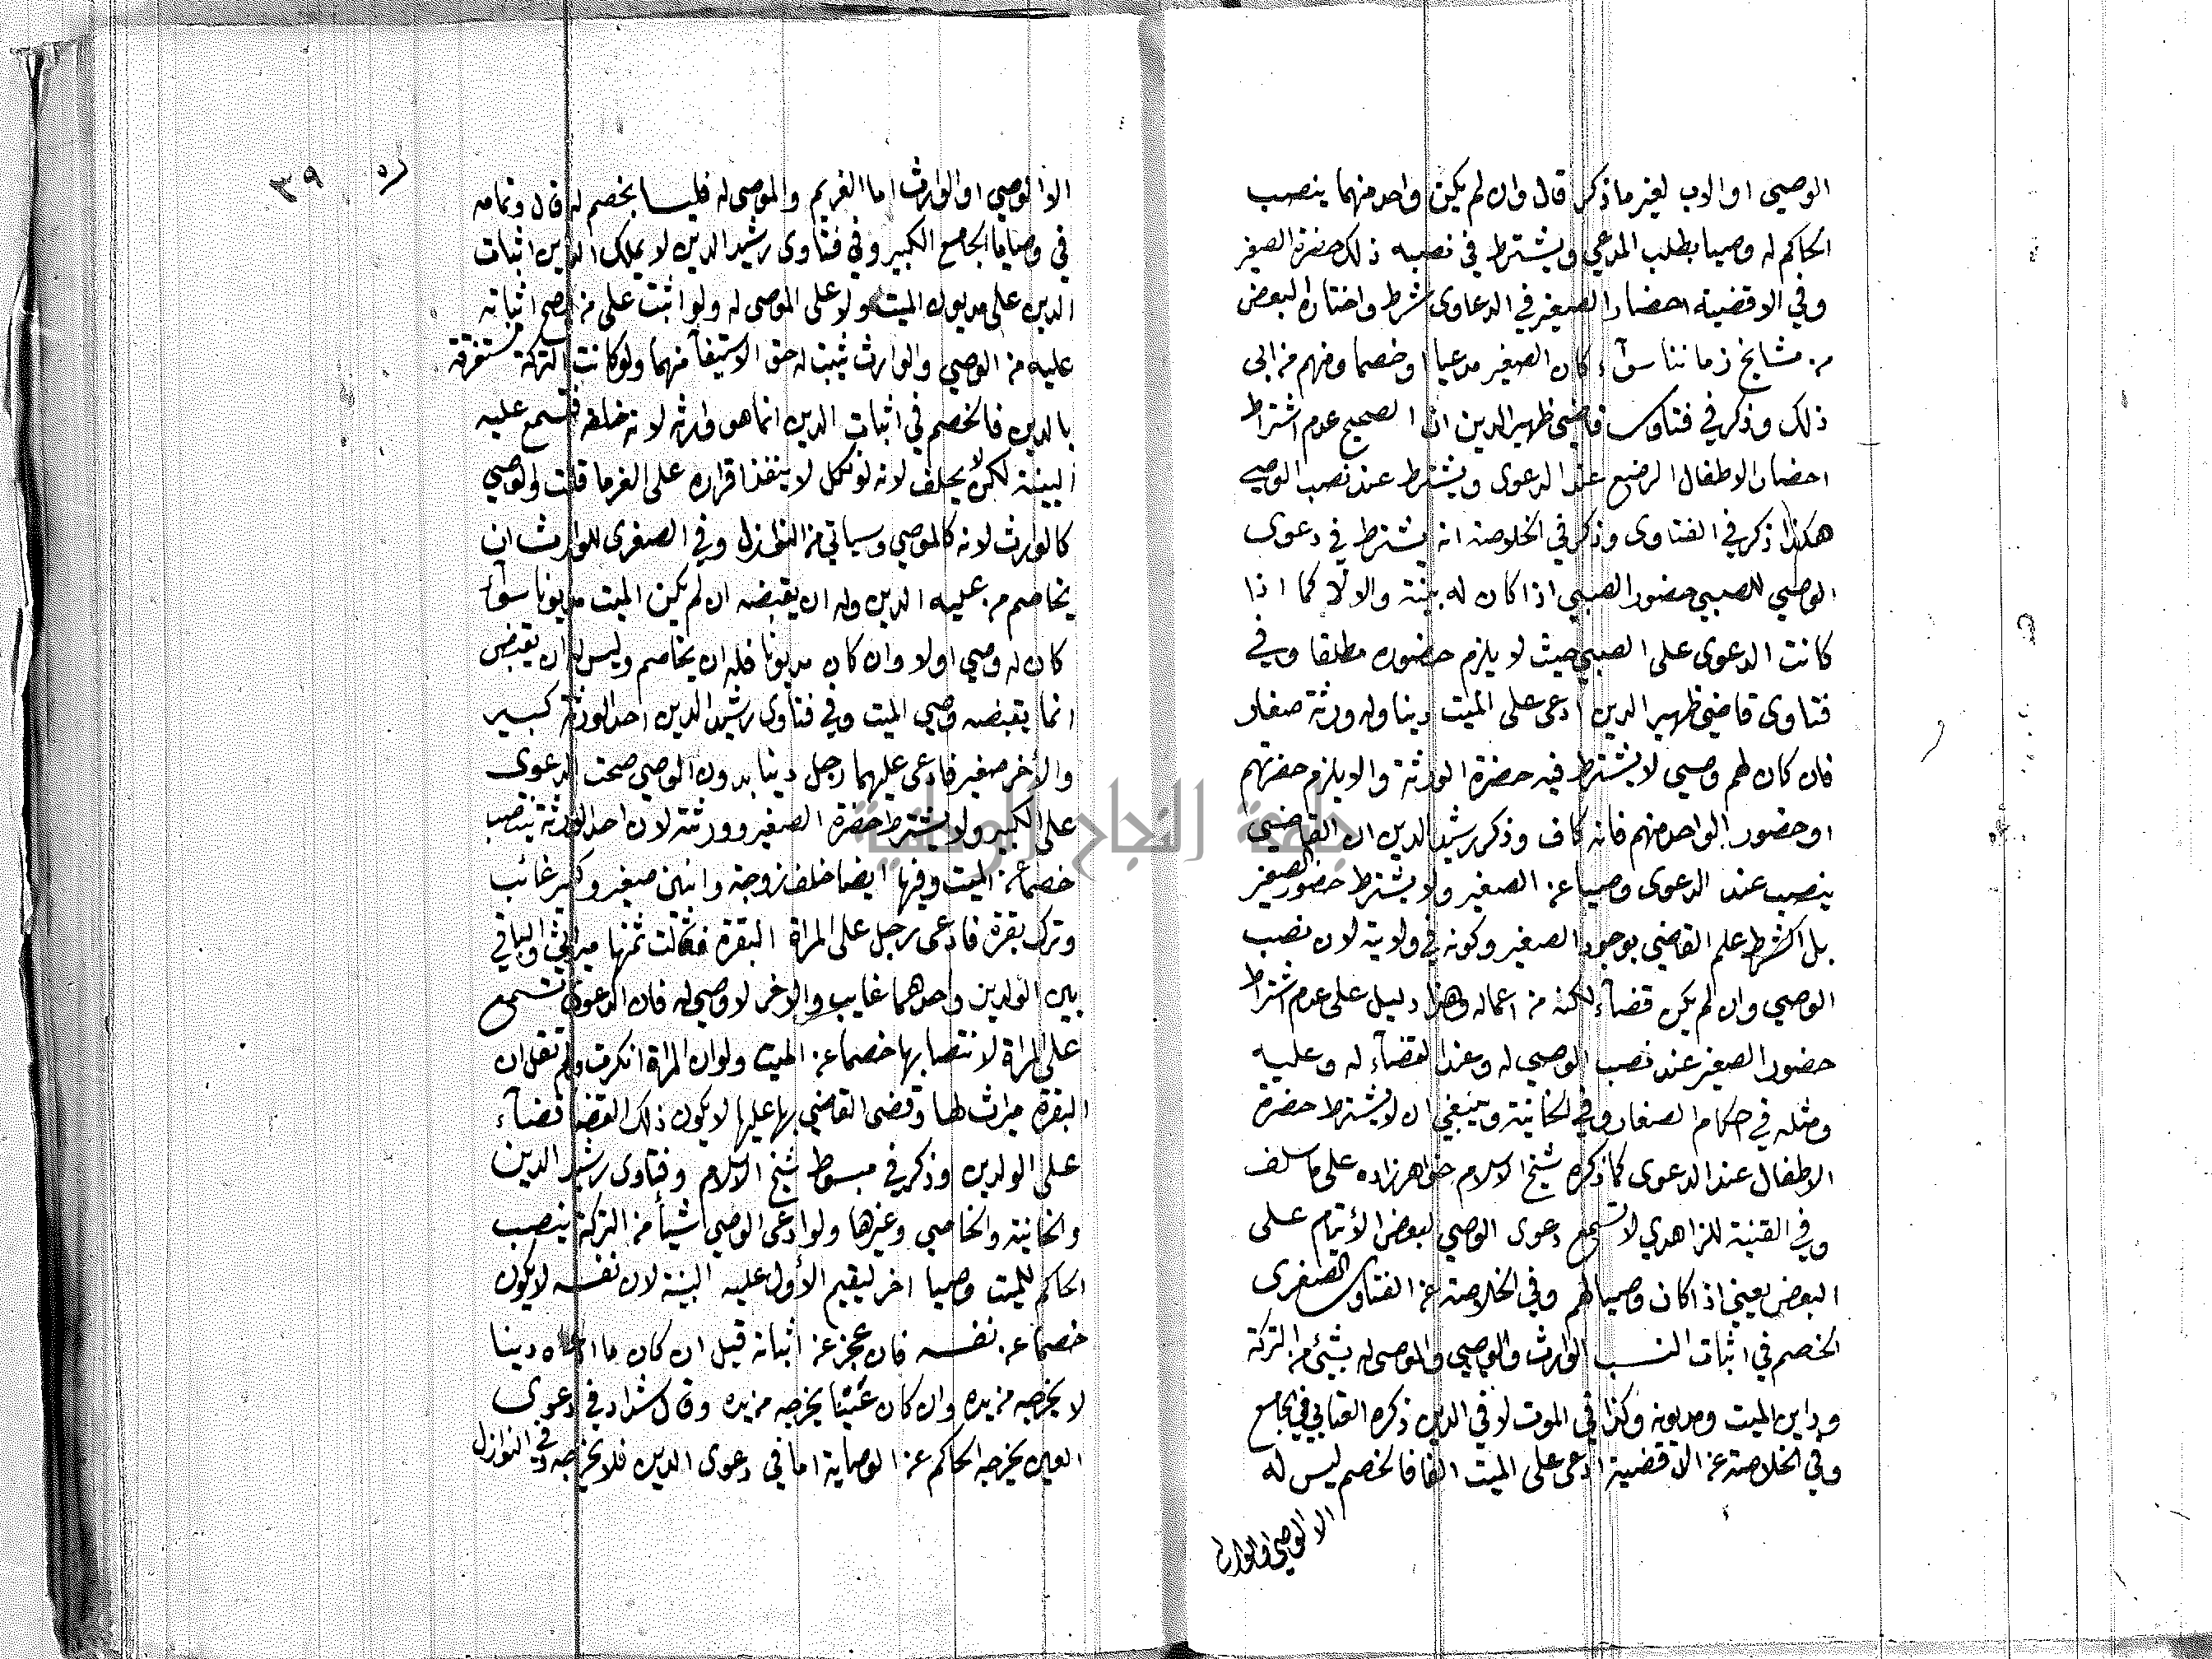 الوصي او الاب لغير ما ذكر قال وان لم يكن واحد منهما ينصب
الحاكم له وصيا بطلب المدعي ويشترط في نصبه ذلك حضرة الصغير
وفي الاقضية احضار الصغير في الدعاوى شرط واختاره البعض
من مشايخ زماننا سوآء كان الصغير مدعيا او خصما ومنهم من ابى
ذلك وذكر في فتاوى قاضي ظهير الدين ان الصحيح عدم اشتراط
احضار الاطفال الرضع عند الدعوى ويشترط عند نصب الوصي
هكذا ذكر في الفتاوى وذكر في الخلاصة انه يشترط في دعوى
الوصي للصبي حضور الصبي اذا كان له بينة والا لا كما اذا
كانت الدعوى على الصبي حيث لا يلزم حضوره مطلقا وفي
فتاوى قاضي ظهير الدين ادعى على الميت دينا وله ورثة صغار
فان كان لهم وصي لا يشترط فيه حضرة الورثة والا يلزم حضرتهم
او حضور الواحد منهم فانه كاف وذكر رشيد الدين ان القاضي
ينصب عند الدعوى وصيا عن الصغير ولا يشترط حضور الصغير
بل الشرط علم القاضي بوجود الصغير وكونه في ولايته لان نصب
الوصي وان لم يكن قضآء لكنه من اعماله وهذا دليل على عدم اشتراط
حضور الصغير عند نصب الوصي له وعند القضآء له وعليه
ومثله في احكام الصغار وفي الخانية وينبغي ان لا يشترط حضرة
الاطفال عند الدعوى كما ذكره شيخ الاسلام خواهر زاده على ما سلف
وفي القنية للزاهدي لا تسمع دعوى الوصي لبعض الأيتام على
البعض يعني اذا كان وصيا لهم وفي الخلاصة عن الفتاوى الصغرى
الخصم في اثبات النسب الوارث والوصي والموصى له بشئ من التركة
وداين الميت ومديونه وكذا في الموت لا في الدين ذكره العتابي في جامع
وفي الخلاصة عن الاقضية ادعى على الميت الفا فالخصم ليس له
الا الوصي او الوارث
٣٩
الا الوصي او الوارث اما الغريم والموصى له فليسا بخصم له قال وتمامه
في وصايا الجامع الكبير وفي فتاوى رشيد الدين لا يملك الداين اثبات
الدين على مديون الميت ولا على الموصى له ولو اثبت على من يصح اثباته
عليه من الوصي والوارث يثبت له حق الاستيفآ منهما ولو كانت التركة مستغرقة
بالدين فالخصم في اثبات الدين انما هو وارثه لانه خلفه فتسمع عليه
البينة لكن لا يحلف لانه لو نكل لا ينفذ اقراره على الغرما قلت والوصي
كالوارث لانه كالموصي وسياتي من النوازل وفي الصغرى للوارث ان
يخاصم من عليه الدين وله ان يقبضه ان لم يكن الميت مديونا سوآء
كان له وصي او لا وان كان مديونا فله ان يخاصم وليس له ان يقبض
انما يقبضه وصي الميت وفي فتاوى رشيد الدين احد الورثة كبير
والأخر صغير فادعى عليهما رجل دينا بدون الوصي صحت الدعوى
على الكبير ولا يشترط حضرة الصغير وورثته لان احد الورثة ينتصب
خصما عن الميت وفيها ايضا خلف زوجة وابنين صغير وكبير غائب
وترك بقرة فادعى رجل على المراة البقرة فقالت ثمنها ميراثي والباقي
بين الولدين واحدهما غايب والاخر لا وصي له فان الدعوى تسمع
على المراة لانتصابها خصما عن الميت ولو ان المراة انكرت ولم تقل ان
البقرة ميراث لها وقضى القاضي بها عليها لا يكون ذلك القضا قضآء
على الولدين وذكر في مبسوط شيخ الاسلام وفتاوى رشيد الدين
والخانية والخاصي وغيرها ولو ادعى الوصي شيأ من التركة ينصب
الحاكم للميت وصيا اخر ليقيم الأول عليه البينة لان نفسه لا يكون
خصما عن نفسه فان عجز عن اثباته قيل ان كان ما ادعاه دينا
لا يخرجه من يده وان كان عينا يخرجه من يده وقال شداد في دعوى
العين يخرجه الحاكم عن الوصاية اما في دعوى الدين فلا يخرجه وفي النوازل